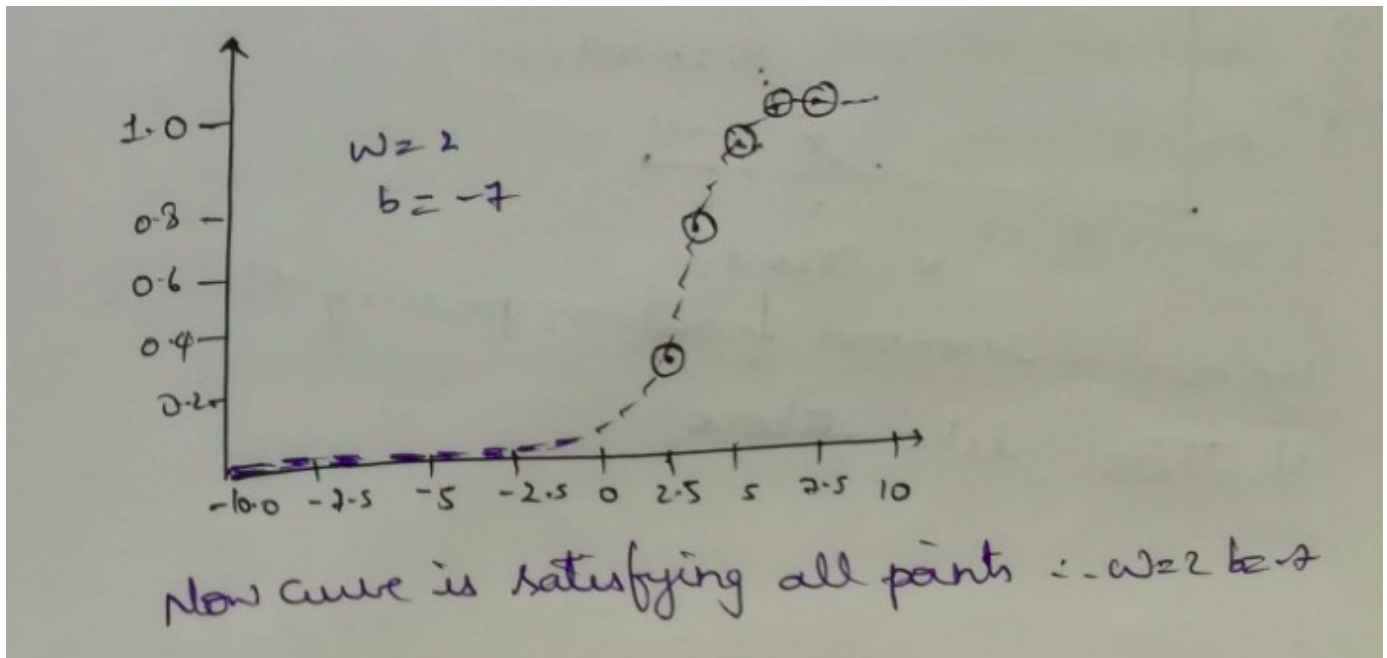 1.0
w = 2
b = -7
0.8
0.6
0.4
0.2
-10.0 -7.5 -5 -2.5 0 2.5 5 7.5 10
Now curve is satisfying all points ∴ w=2 b=-7